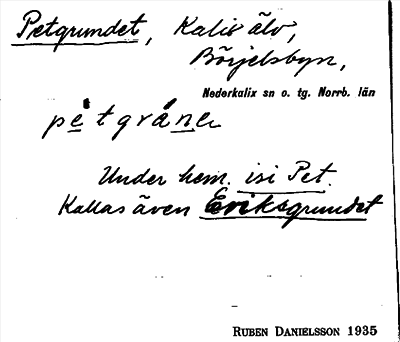 Petgrundet, Kalix älv,
Börjelsbyn,
Nederkalix sn o. tg. Norrb. län
Under hem. isi Pet.
Kallas även Eriksgrundet
RUBEN DANIELSSON 1935